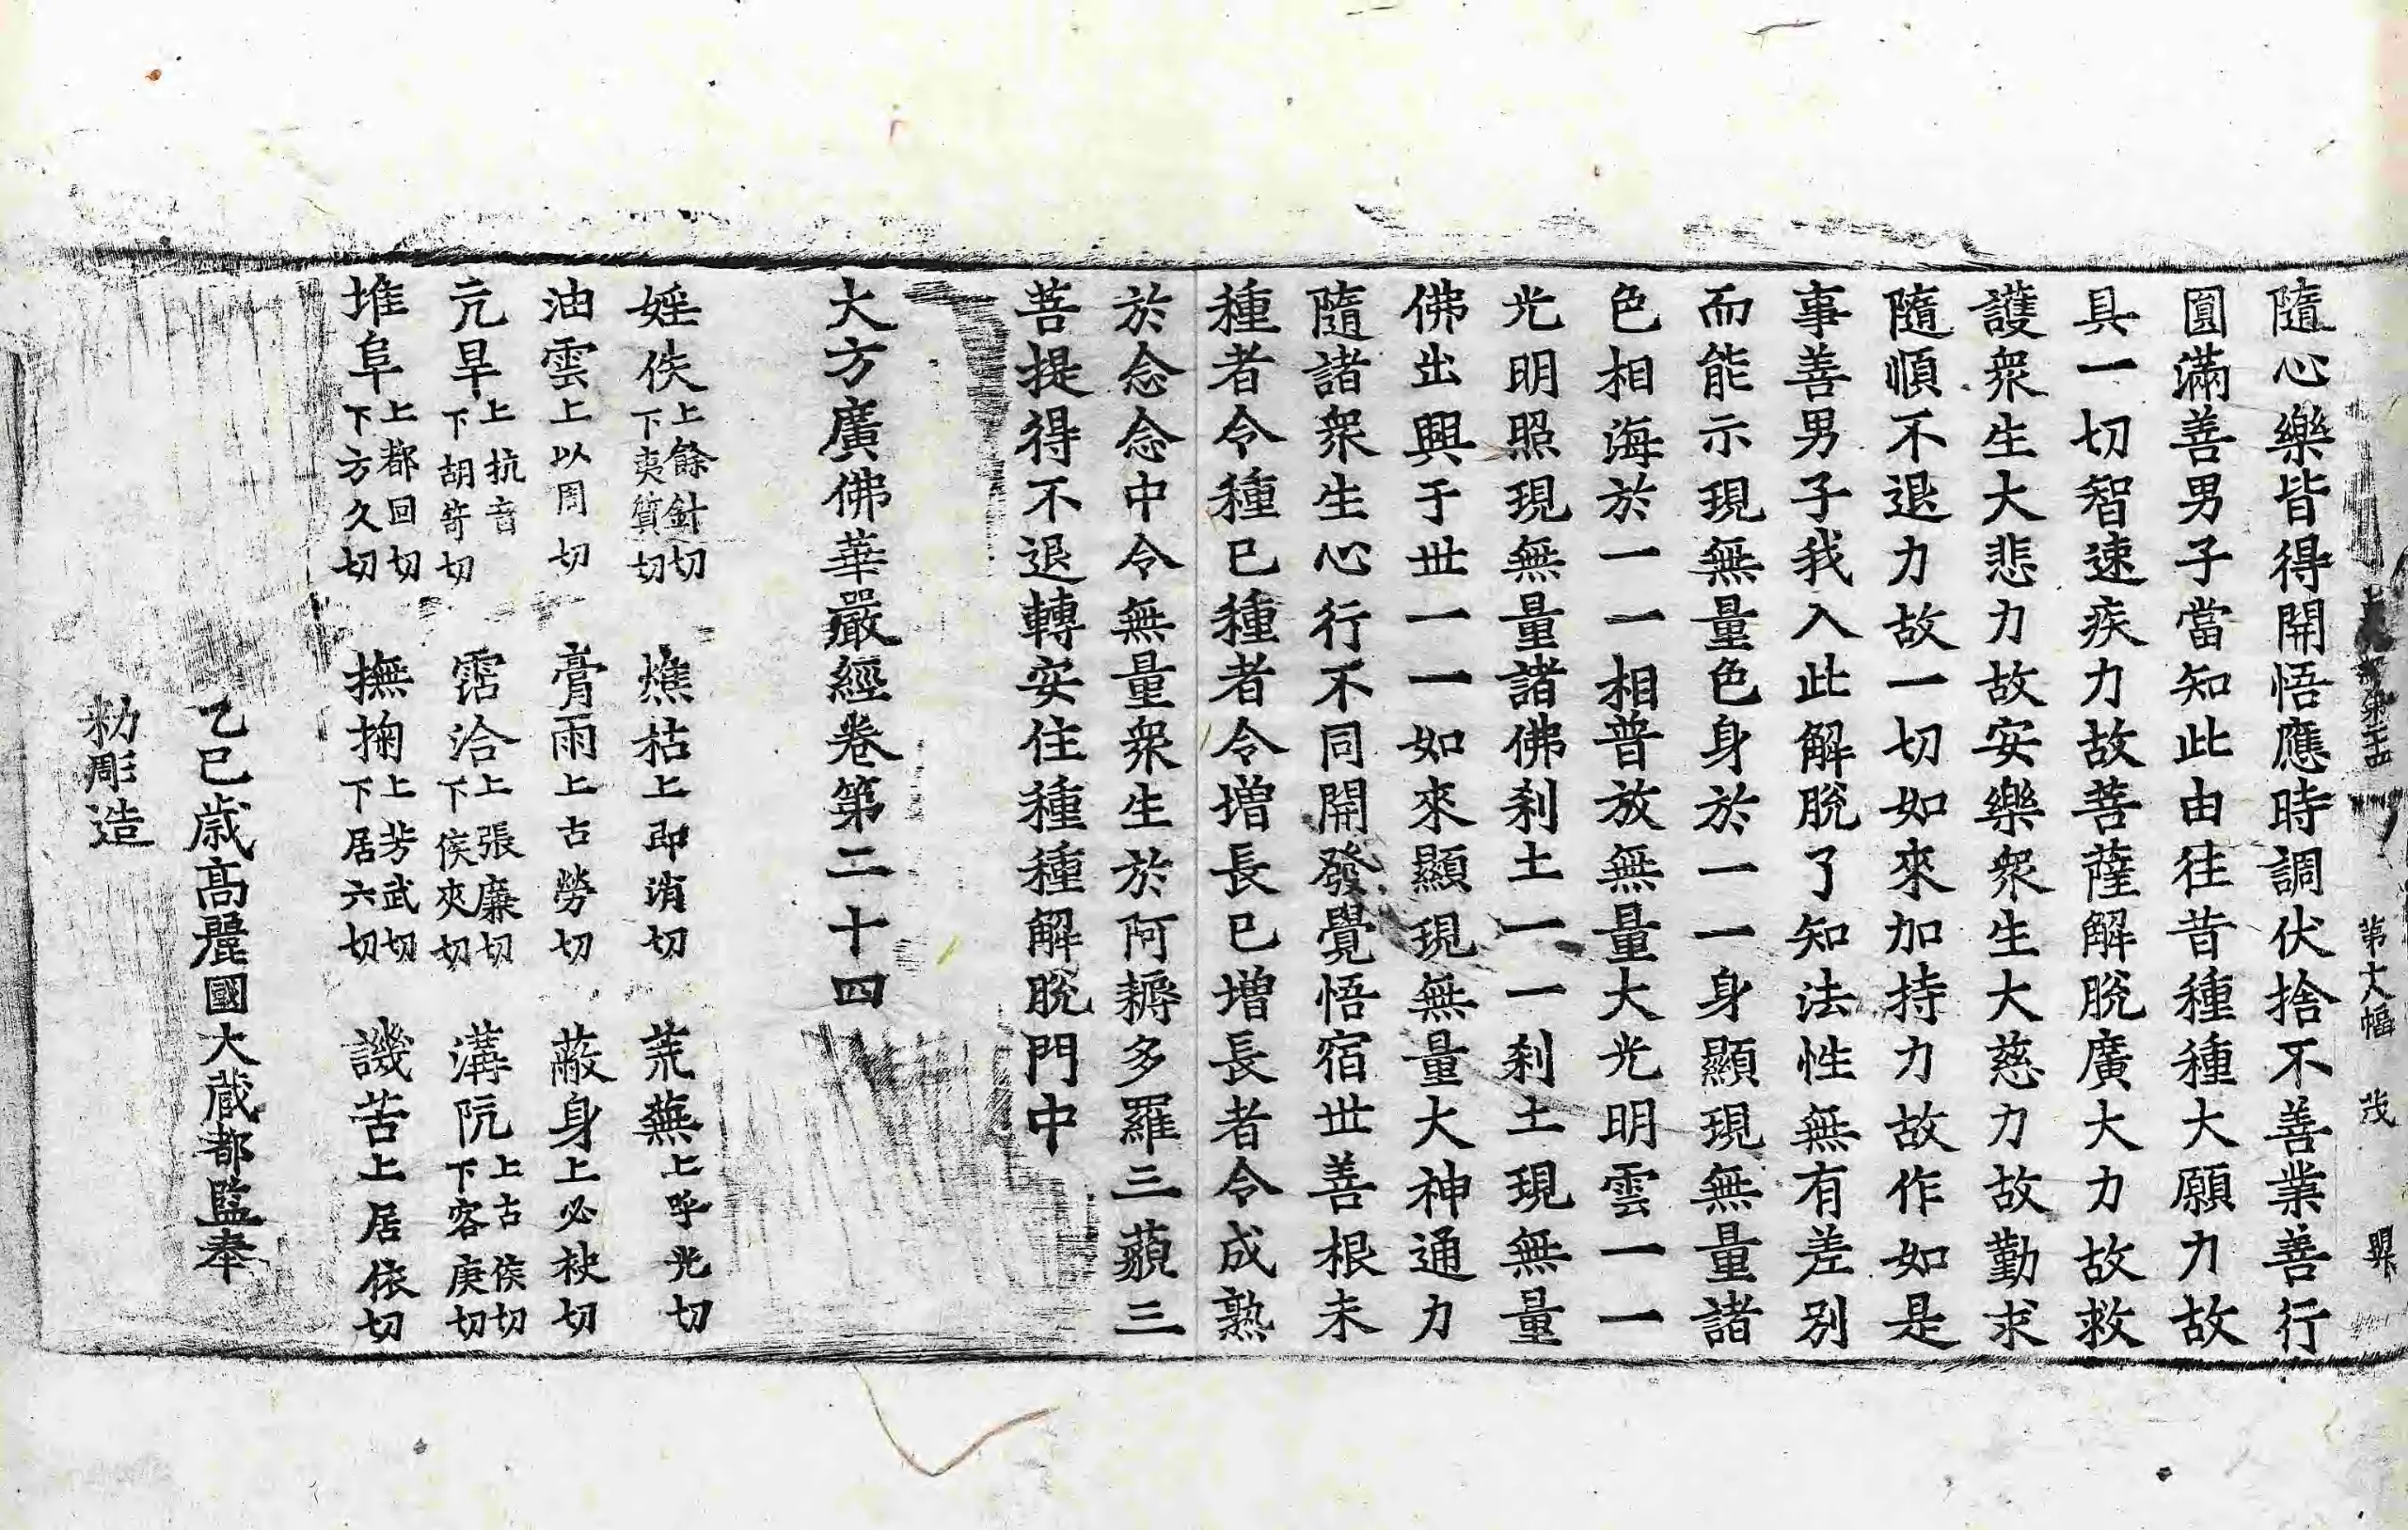 隨心樂皆得開悟應時調伏捨不善業善行
圓滿善男子當知此由往昔種種大願力故
具一切智速疾力故菩薩解脫廣大力故救
護衆生大悲力故安樂衆生大慈力故勤求
隨順不退力故一切如來加持力故作如是
事善男子我入此解脫了知法性無有差別
而能示現無量色身於一一身顯現無量諸
色相海於一一相普放無量大光明雲一一
光明照現無量諸佛刹土一一刹土現無量
佛出興于世一一如來顯現無量大神通力
隨諸衆生心行不同開發覺悟宿世善根未
種者令種已種者令增長已增長者令成熟
於念念中令無量衆生於阿耨多羅三藐三
菩提得不退轉安住種種解脫門中
大方廣佛華嚴經卷第二十四
婬佚上餘針切下夷質切 燋枯上即消切 荒蕪上呼光切
油雲上以周切 膏雨上古勞切 蔽身上必袂切
亢旱上抗音下胡笴切 霑洽上張廉切下侯夾切 溝阬上古侯切下客庚切
堆阜上都回切下方久切 撫掬上芳武切下居六切 譏苦上居依切
乙巳歲高麗國大藏都監奉
勑彫造